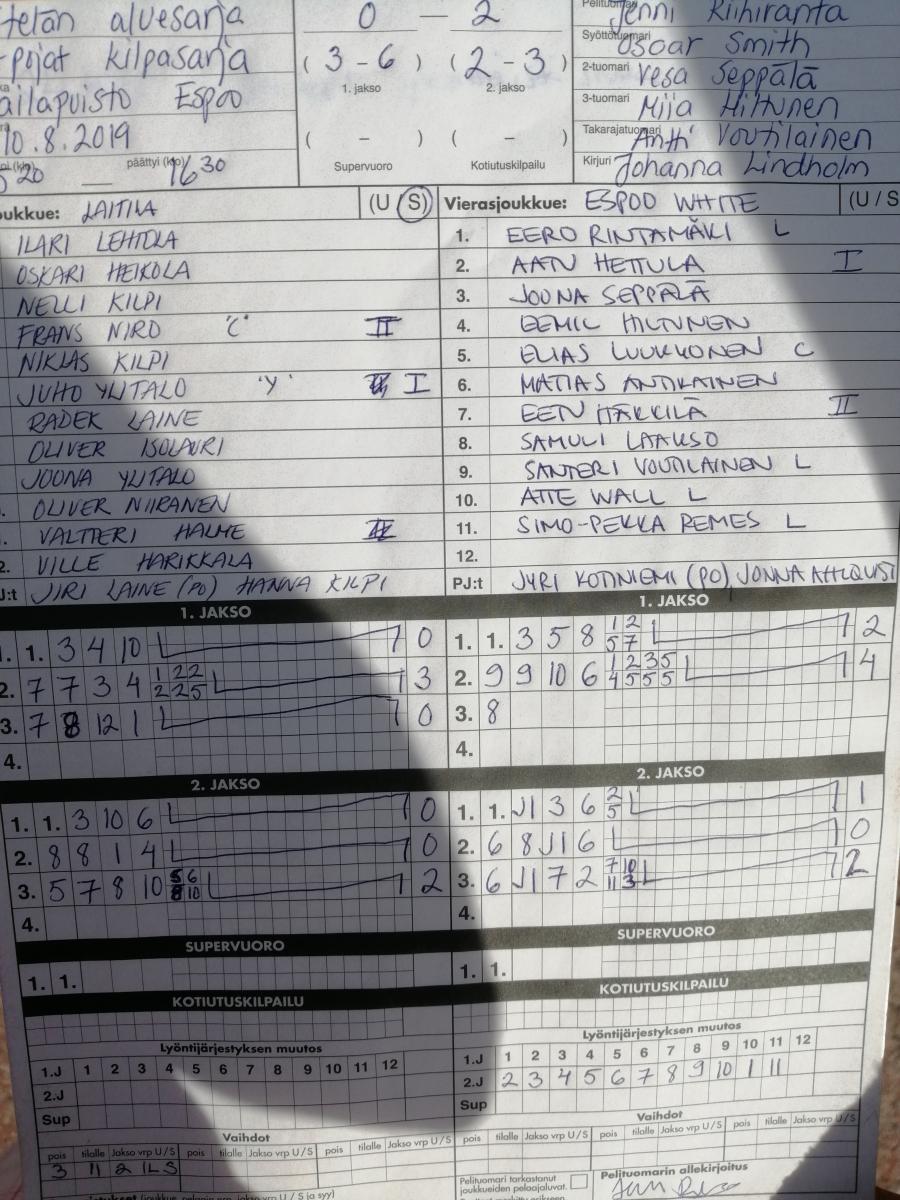 telän aluesarja
0 — 2
Pelituomari Jenni Riihiranta
-pojat kilpasarja
( 3 - 6 ) ( 2 - 3 )
Syöttötuomari Oscar Smith
1. jakso 2. jakso
2-tuomari Vesa Seppälä
ailapuisto Espoo
3-tuomari Miia Hiltunen
10.8.2019
( - ) ( - )
Takarajatuomari Antti Voutilainen
20 — päättyi (klo) 1630
Supervuoro Kotiutuskilpailu
Kirjuri Johanna Lindholm
oukkue: LAITILA (U / S)
ILARI LEHTOLA
OSKARI HEIKOLA
NELLI KILPI
FRANS NIRO "C" II
NIKLAS KILPI
JUHO YLITALO 'Y' I
RADEK LAINE
OLIVER ISOLAURI
JOONA YLITALO
OLIVER NIIRANEN
VALTTERI HALME
2. VILLE HARIKKALA
J:t JIRI LAINE (PO) HANNA KILPI
Vierasjoukkue: ESPOO WHITE (U / S
1. EERO RINTAMÄKI L
2. AATU HETTULA I
3. JOONA SEPPÄLÄ
4. EEMIL HILTUNEN
5. ELIAS LUUKKONEN C
6. MATIAS ANTIKAINEN
7. EETU ITÄKKILÄ II
8. SAMULI LAAKSO
9. SANTERI VOUTILAINEN L
10. ATTE WALL L
11. SIMO-PEKKA REMES L
12.
PJ:t JYRI KOTINIEMI (PO), JONNA AHLQVIST
1. JAKSO
1. 1. 3 4 10 0
2. 7 7 3 4 1 2 2 3
2 2 5
3. 7 8 12 1 0
4.
1. JAKSO
1. 1. 3 5 8 1 2 2
5 7
2. 9 9 10 6 1 2 3 5 4
4 5 5 5
3. 8
4.
2. JAKSO
1. 1. 3 10 6 0
2. 8 8 1 4 0
3. 5 7 8 10 5 6 2
8 10
4.
2. JAKSO
1. 1. J1 3 6 2 1
5
2. 6 8 J1 6 0
3. 6 J1 7 2 7 10 2
11 3
4.
SUPERVUORO
1. 1.
SUPERVUORO
1. 1.
KOTIUTUSKILPAILU
KOTIUTUSKILPAILU
Lyöntijärjestyksen muutos
1.J 1 2 3 4 5 6 7 8 9 10 11 12
2.J
Sup
Lyöntijärjestyksen muutos
1.J 1 2 3 4 5 6 7 8 9 10 11 12
2.J 2 3 4 5 6 7 8 9 10 1 11
Sup
Vaihdot
pois tilalle Jakso vrp U/S pois tilalle Jakso vrp U/S pois tilalle Jakso vrp U/S
3 11 2 1L S
Vaihdot
pois tilalle Jakso vrp U/S pois tilalle Jakso vrp U/S pois tilalle Jakso vrp U/S
Pelituomari tarkastanut
joukkueiden pelaajaluvat.
Pelituomarin allekirjoitus